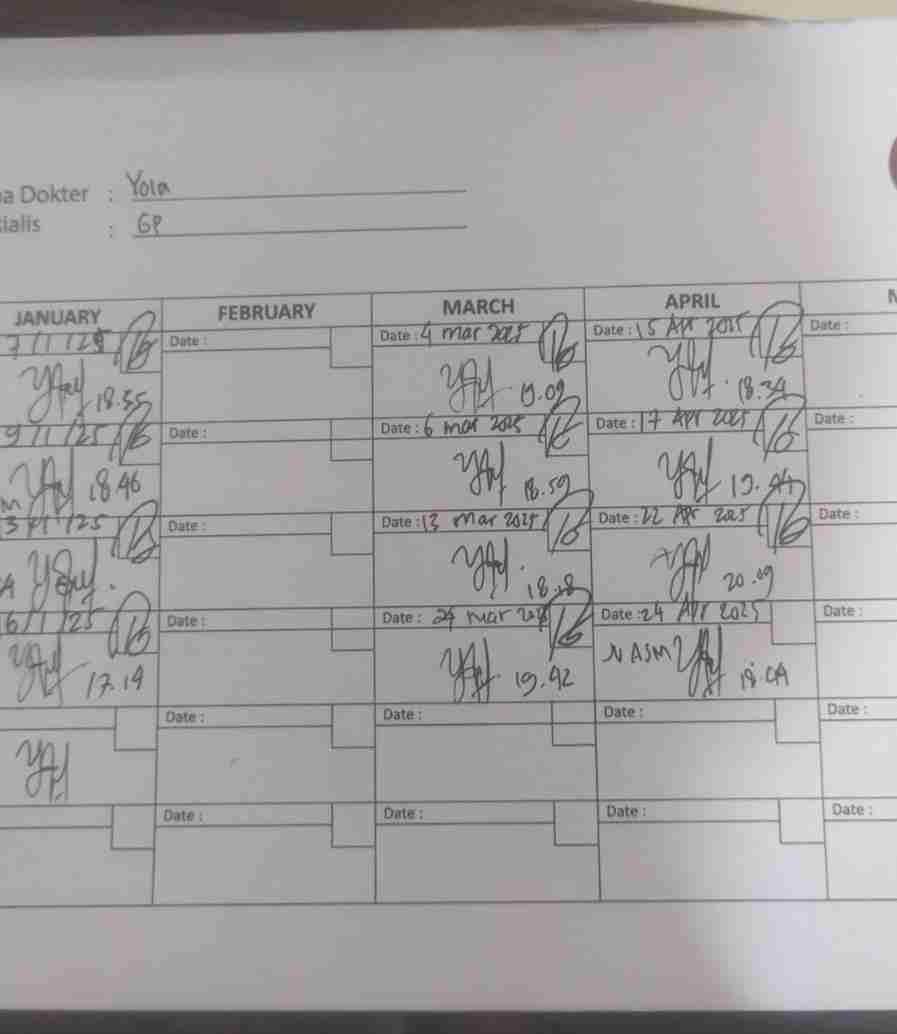 a Dokter : Yola
ialis : GP
JANUARY FEBRUARY MARCH APRIL
7/1/25 Date : Date : 4 mar 2025 Date : 15 Apr 2025 Date :
18.55 19.09 18.34
9/1/25 Date : Date : 6 mar 2025 Date : 17 Apr 2025 Date :
18.46 18.59 19.44
3/1/25 Date : Date : 13 mar 2025 Date : 22 Apr 2025 Date :
18.18 20.09
6/1/25 Date : Date : mar Date : 24 Apr 2025 Date :
17.19 19.42 NASM 18.04
Date : Date : Date : Date :
Date : Date : Date : Date :